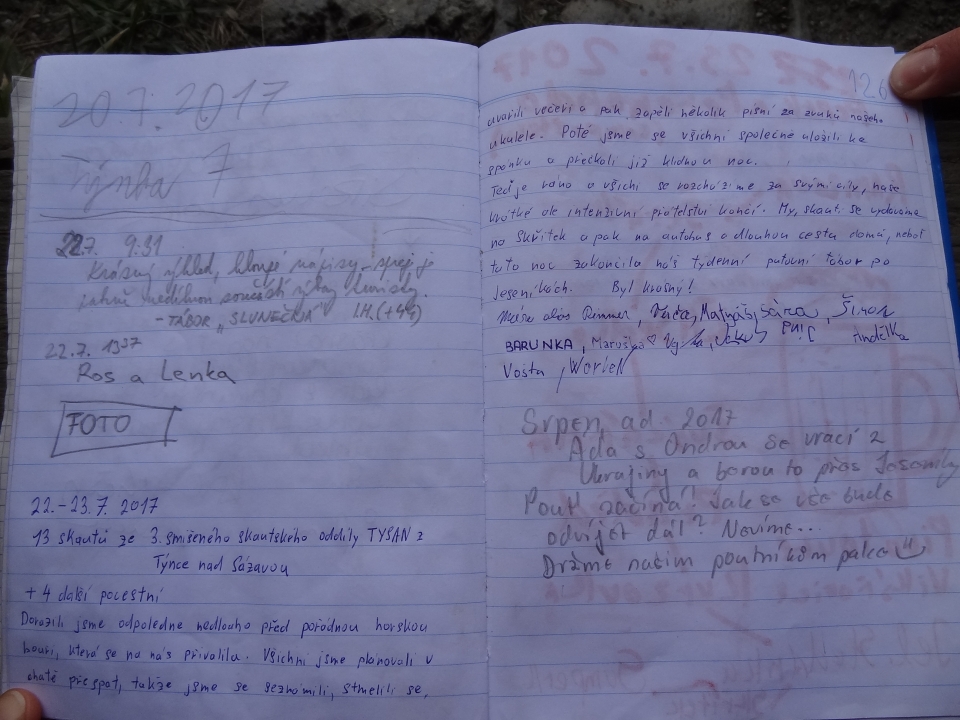 20.7.2017
Týnda 7
22.7. 9:31
Krásný výhled, hloupé nápisy - spíš je
- TÁBOR „SLUNEČKA" LH. (+44)
22.7. 13³⁷
Ros a Lenka
FOTO
22.-23.7. 2017
13 skautů ze 3. smíšeného skautského oddílu TYSAN z
Týnce nad Sázavou
+ 4 další pocestní
Dorazili jsme odpoledne nedlouho před pořádnou horskou
bouří, která se na nás přivalila. Všichni jsme plánovali v
chatě přespat, takže jsme se seznámili, stmelili se,
126
uvařili večeři a pak zapěli několik písní za zvuků našeho
ukulele. Poté jsme se všichni společně uložili ke
spánku a přečkali již klidnou noc.
Teď je ráno a všichi se rozcházíme za svými cíly, naše
krátké ale intenzivní přátelství končí. My, skauti se vydáváme
na Skřítek a pak na autobus a dlouhou cestu domů, neboť
tato noc zakončila náš týdenní putovní tábor po
Jeseníkách. Byl krásný!
alias Rimmer, Verča, Matyáš, Sára, Šimon
BARUNKA, Maruška ♡ Andělka
Vosta, Worlen
Srpen, ad. 2017
Áda s Ondrou se vrací z
Ukrajiny a berou to přes Jeseníky
Pouť začíná! Jak se vše bude
odvíjet dál? Nevíme...
Držme našim poutníkům palce